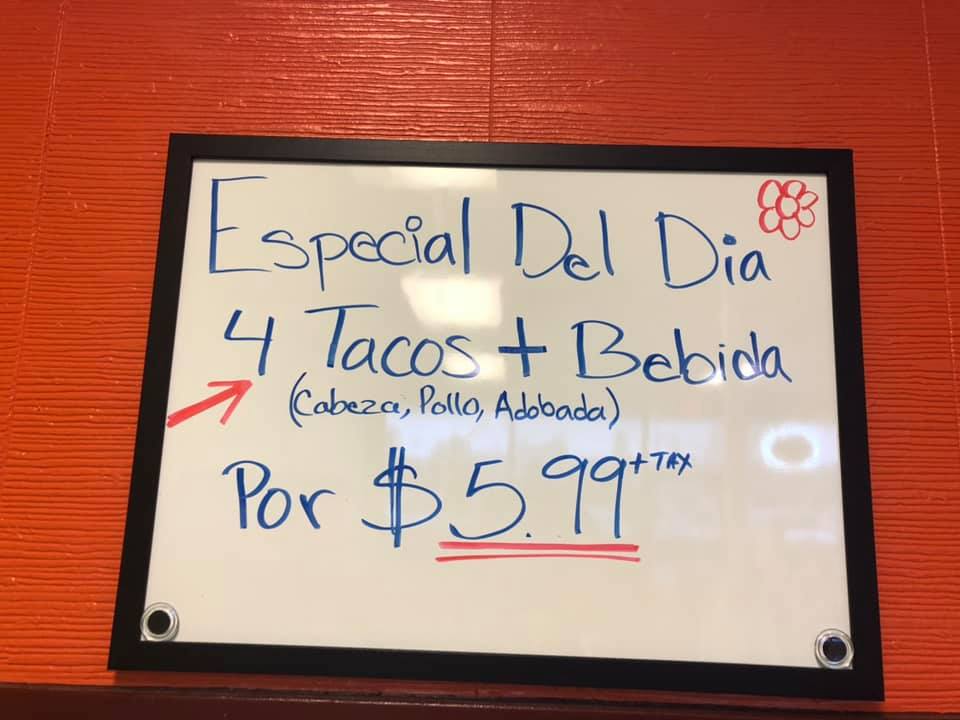 Especial Del Dia
4 Tacos + Bebida
(Cabeza, Pollo, Adobada)
Por $5.99 + TAX